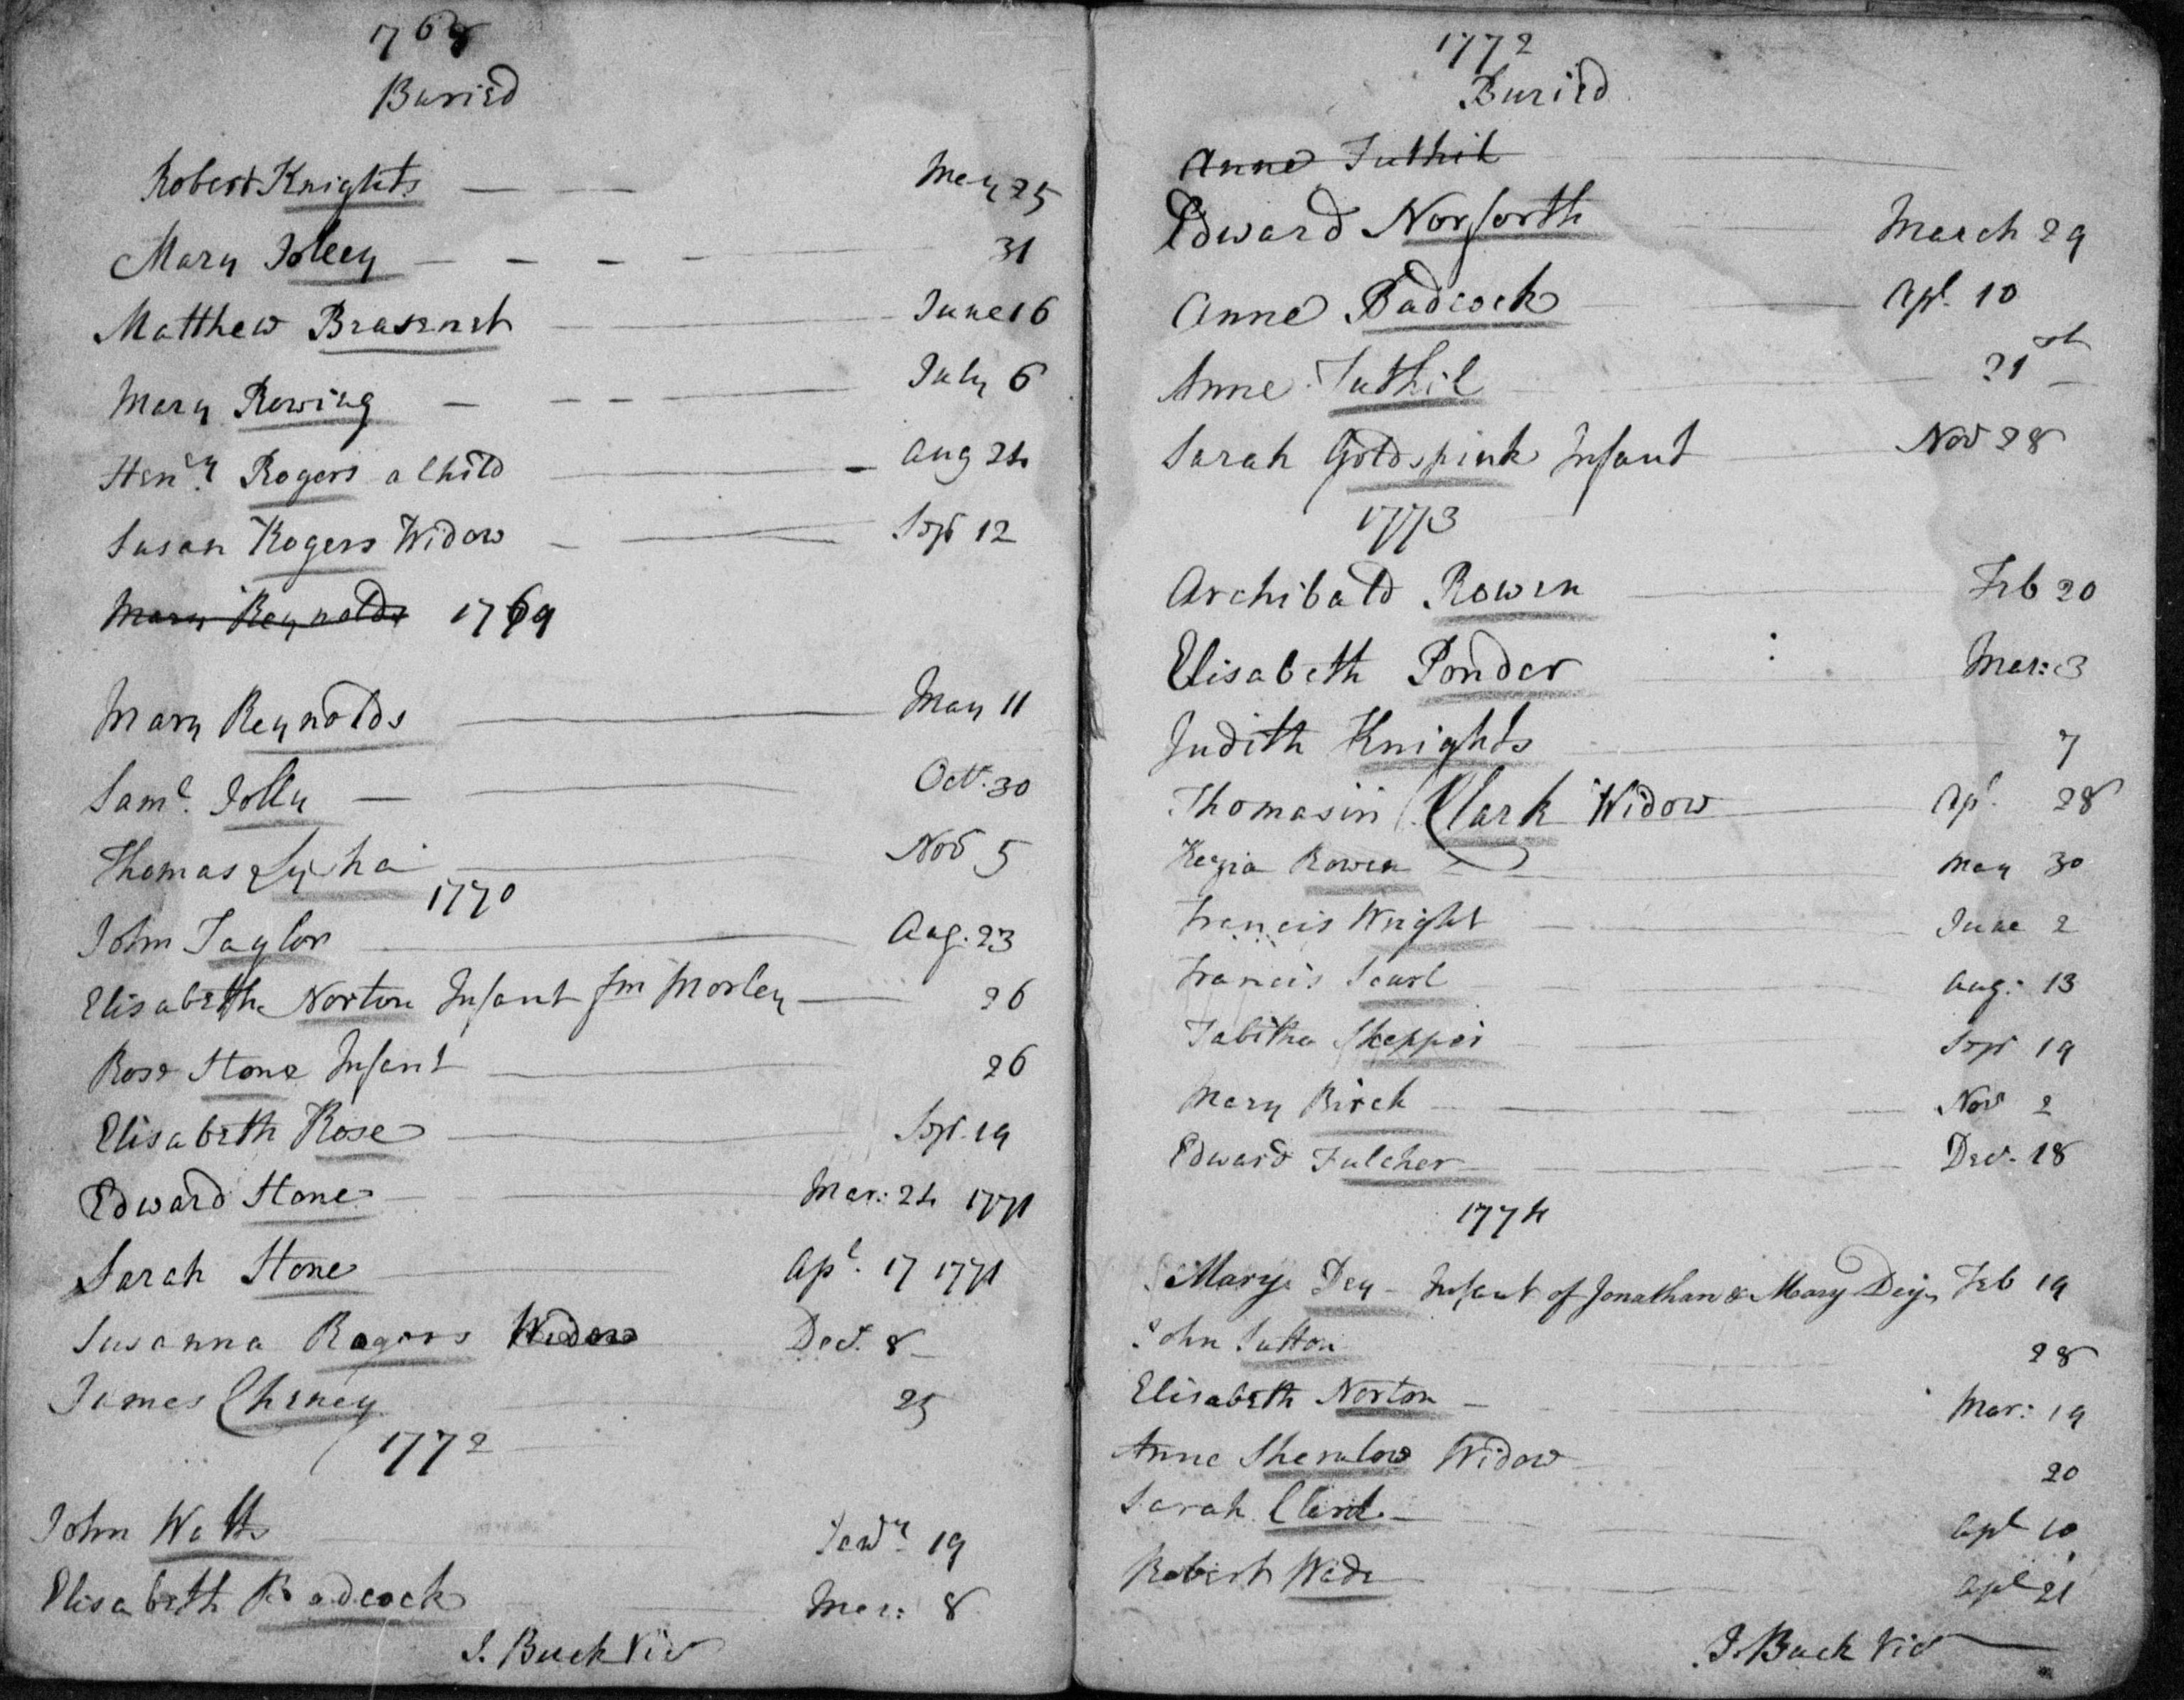 1768
Buried
Robert Knights May 25
Mary Jolley 31
Matthew Brasnet June 16
Mary Rowing July 6
Henry Rogers a Child Aug 24
Susan Rogers Widow Sept 12
Mary Reynolds 1769
Mary Reynolds May 11
Saml. Jolly Octr. 30
Thomas Nov 5
1770
John Taylor Aug. 23
Elisabeth Norton Infant fm Morley 26
Rose Stone Infant 26
Elisabeth Rose Sept. 19
Edward Stone Mar: 24 1771
Sarah Stone Apl. 17 1771
Susanna Rogers Widow Dec. 8
James Cheney 25
1772
John Watts 19
Elisabeth Badcock Mar: 8
J. Buck Vic
1772
Buried
Anne Tuthil
Edward Norforth March 29
Anne Badcock Apl. 10
Anne Tuthil 21st
Sarah Goldspink Infant Nov 28
1773
Archibald Rowen Feb 20
Elisabeth Ponder Mar: 3
Judith Knights 7
Thomasin Clark Widow Apl. 28
Kezia Rowen May 30
Francis Wright June 2
Francis Searl Aug: 13
Tabitha Sept 19
Mary Birch Nov 2
Edward Fulcher Dec. 18
1774
Mary Dey - Infant of Jonathan & Mary Dey Feb 19
John Sutton 28
Elisabeth Norton Mar: 19
Anne Widow 20
Sarah Clark Apl 10
Robert Wade Apl 21
J. Buck Vic